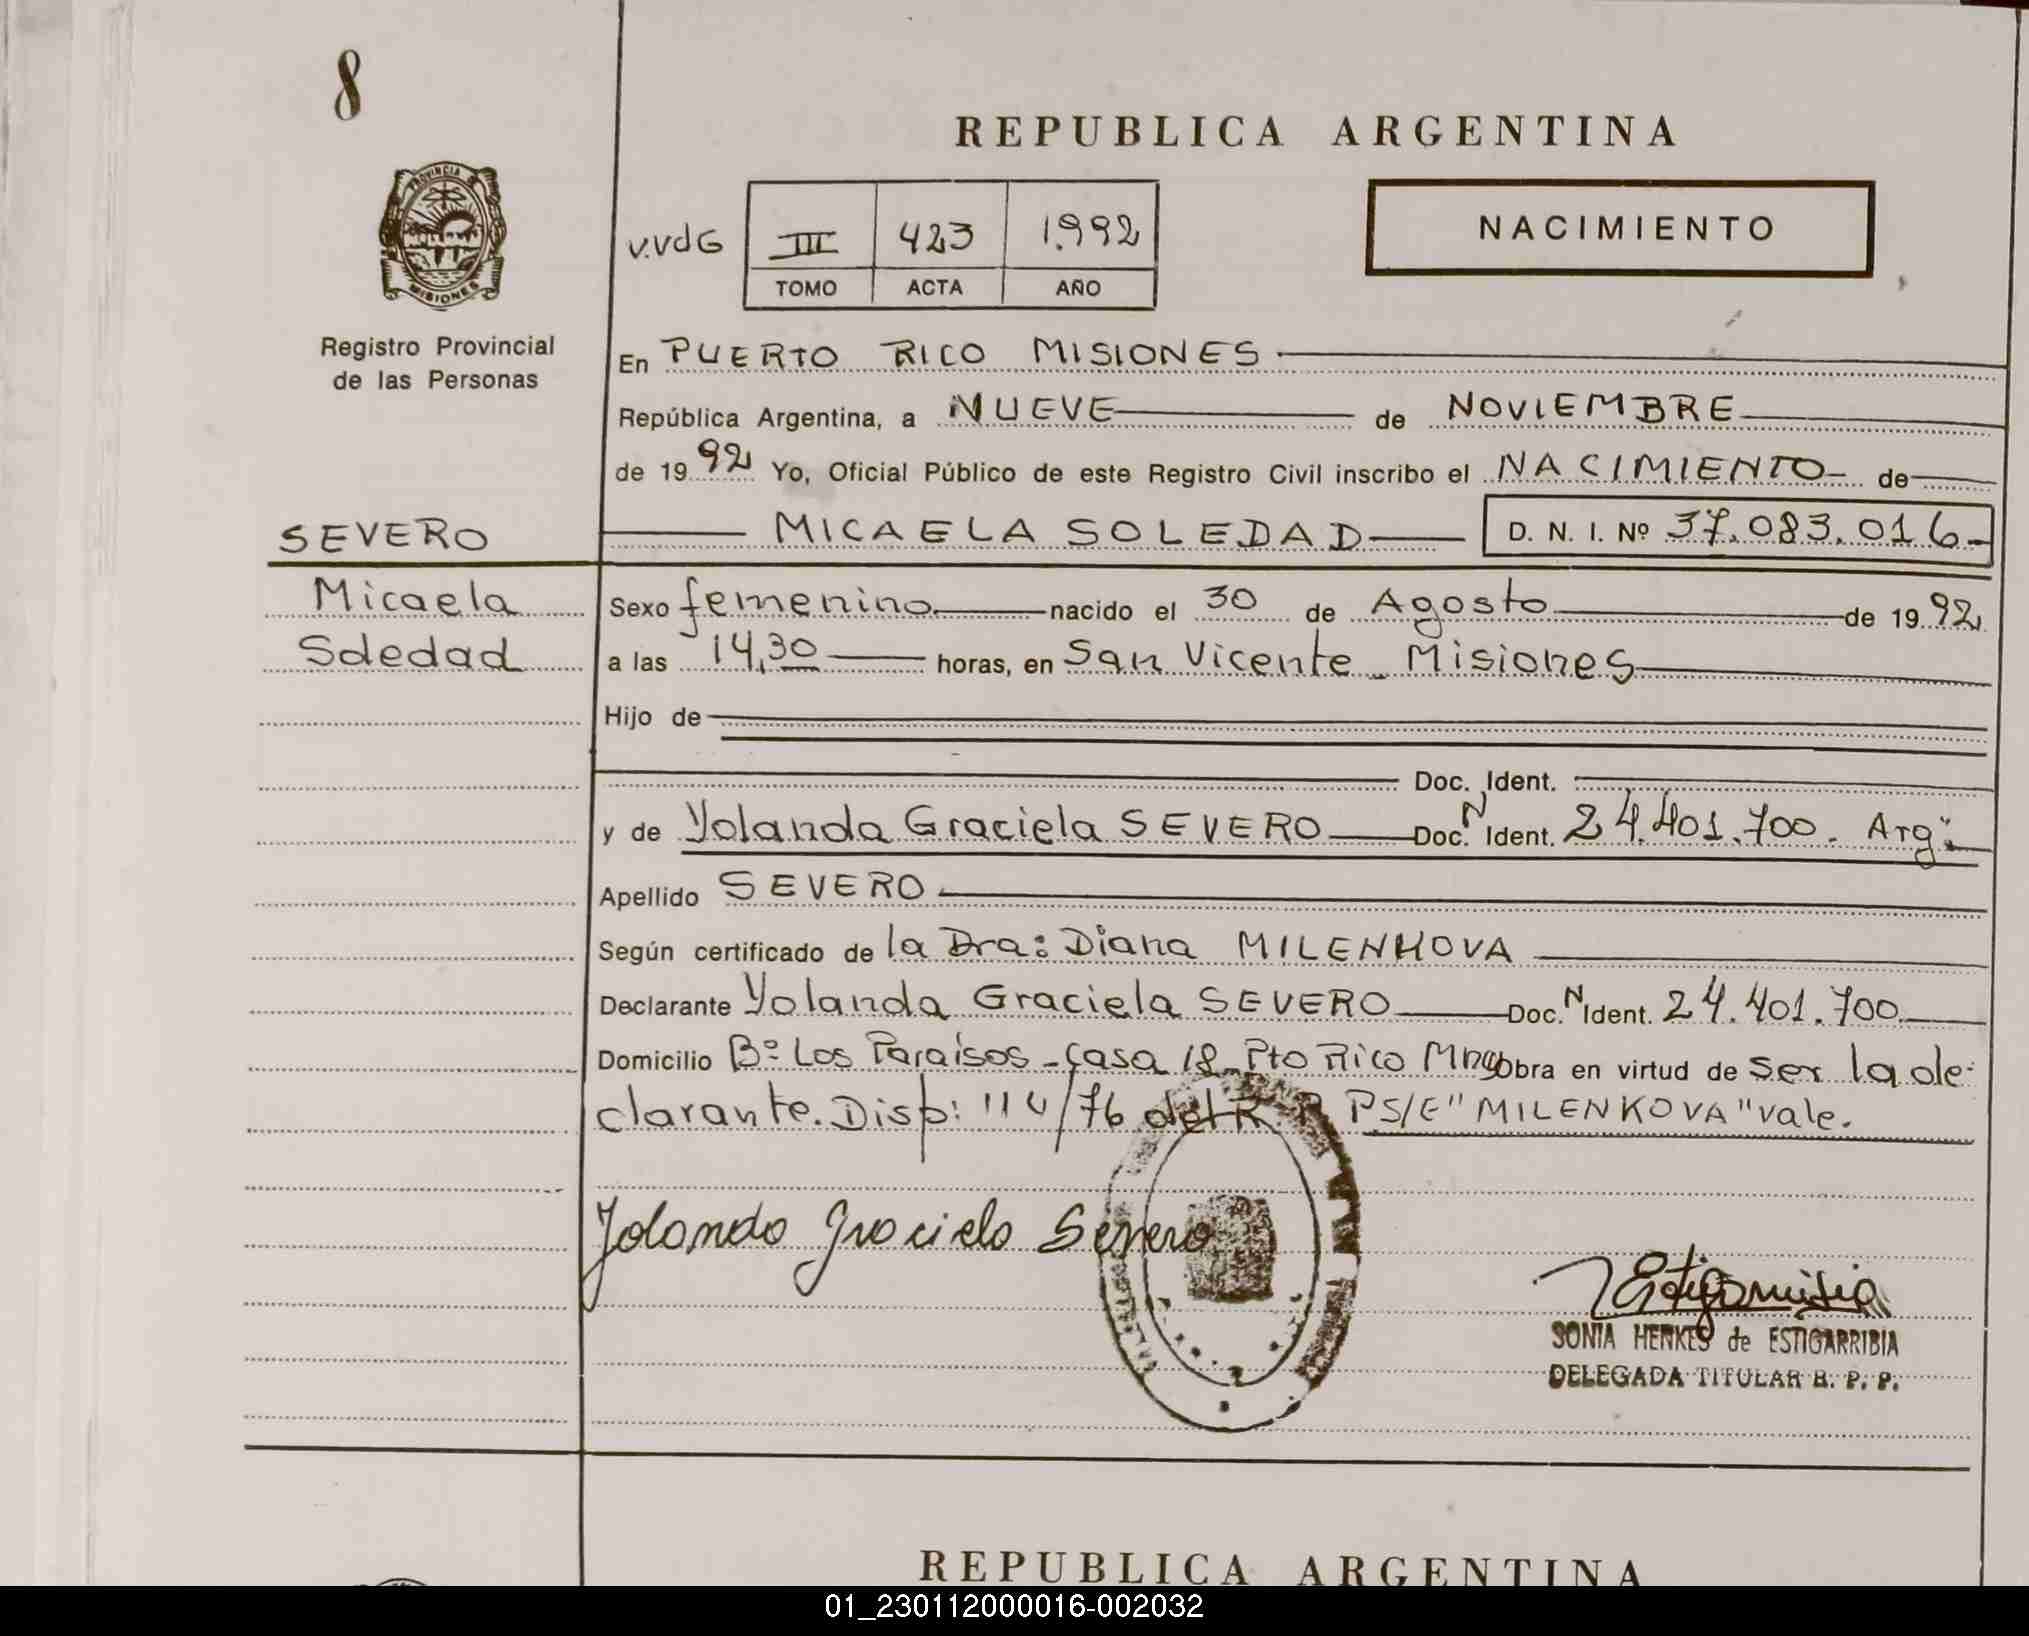 8
REPUBLICA ARGENTINA
PROVINCIA DE
MISIONES
V.VdG III 423 1.992
TOMO ACTA AÑO
NACIMIENTO
Registro Provincial
de las Personas
En PUERTO RICO MISIONES
República Argentina, a NUEVE de NOVIEMBRE
de 1992 Yo, Oficial Público de este Registro Civil inscribo el NACIMIENTO de
SEVERO MICAELA SOLEDAD D. N. I. Nº 37.083.016
Micaela Sexo femenino nacido el 30 de Agosto de 1992
Soledad a las 14,30 horas, en San Vicente - Misiones
Hijo de
Doc. Ident.
y de Yolanda Graciela SEVERO Doc. N Ident. 24.401.700. Arg":
Apellido SEVERO
Según certificado de la Dra: Diana MILENHOVA
Declarante Yolanda Graciela SEVERO Doc. N Ident. 24.401.700
Domicilio Bº Los Paraísos - Casa 18 - Pto Rico Mnes Obra en virtud de ser la de-
clarante. Disp: 114/76 del R. P. PS/E "MILENKOVA" vale.
Yolanda Graciela Severo
SONIA HENKES de ESTIGARRIBIA
DELEGADA TITULAR R. P. P.
REPUBLICA ARGENTINA
01_230112000016-002032